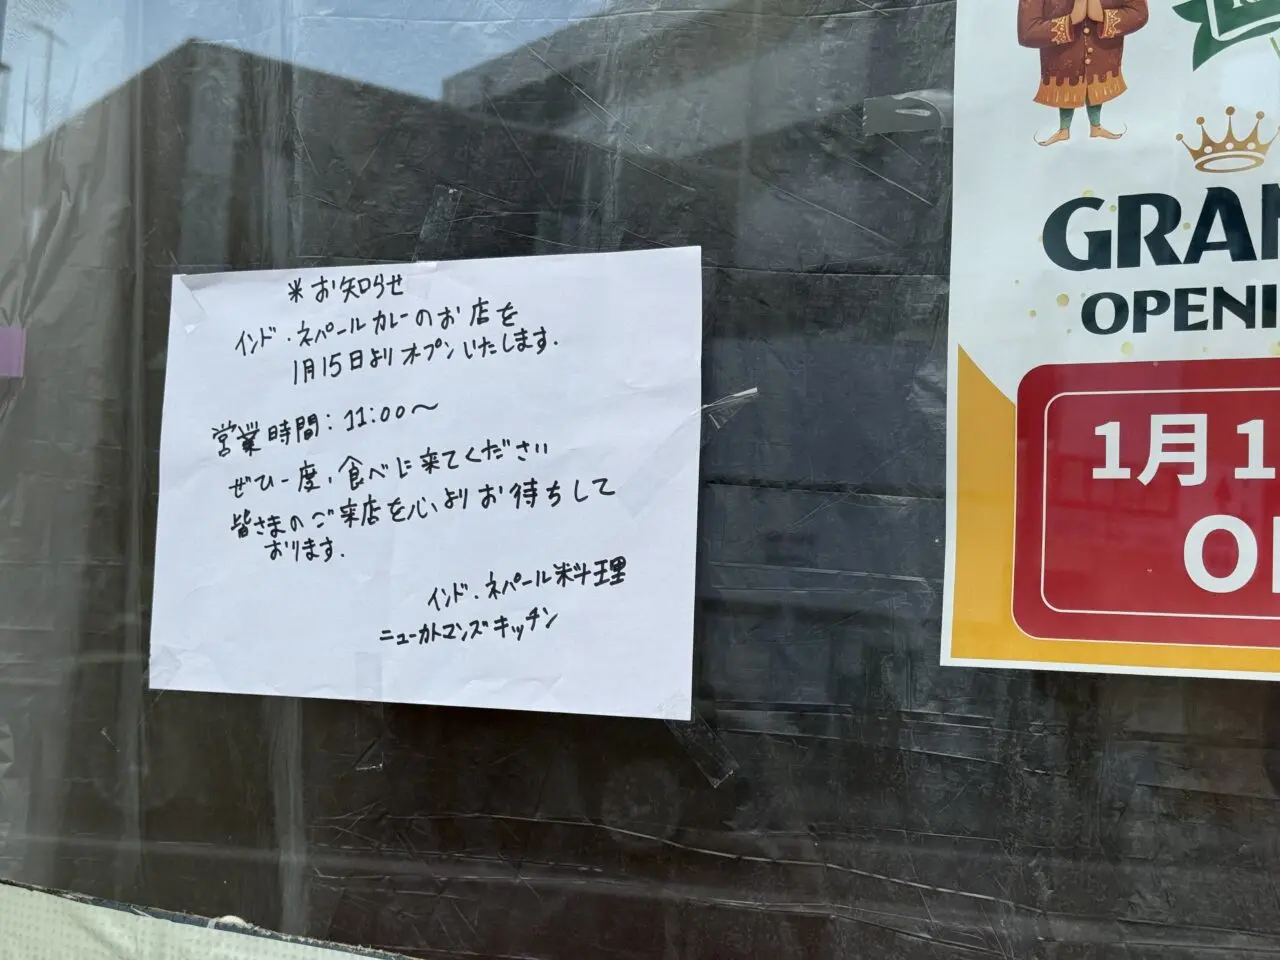 ※お知らせ
インド・ネパールカレーのお店を
1月15日よりオープンいたします.
営業時間:11:00〜
ぜひ一度、食べに来てください
皆さまのご来店を心よりお待ちして
おります.
インド・ネパール料理
ニューカトマンズキッチン
GRAN
OPENI
1月1